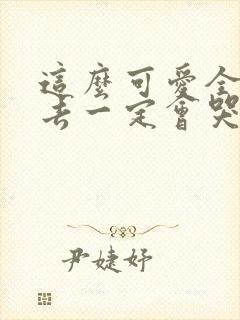 這麼可愛全
去一定會哭
尹婕妤